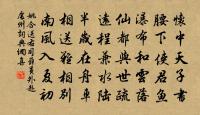 懷中天子書
腰下使君魚
瀑布和雲落
仙都與世疏
遠程兼水陸
半歲在舟車
相送難相別
南風入夏初
姚合送右司薛員外赴
處州詞典網